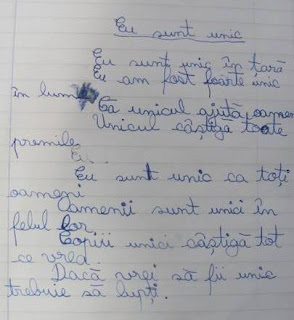 Eu sunt unic
Eu sunt unic în țară
Eu am fost foarte unic
în lume
Ca unicul ajută oameni
Unicul câștiga toate
premile.
Eu...
Eu sunt unic ca toți
oameni
Oamenii sunt unici în
felul lor.
Copiii unici câștigă tot
ce vrea.
Dacă vrei să fii unic
trebuie să lupți.